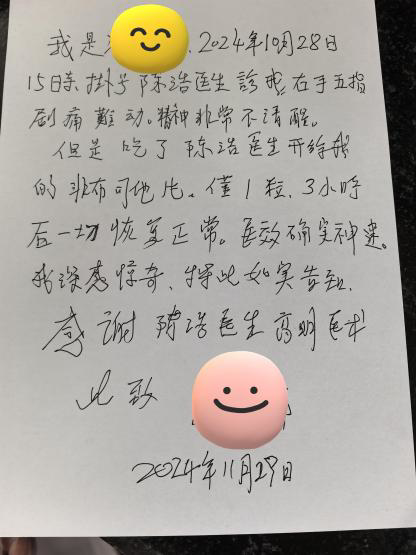 我是 2024年10月28日
15时掛号陈浩医生診我右手五指
剧痛難动。精神非常不清醒。
但是吃了陈浩医生开给我
的非布司他片。僅1粒,3小时
后一切恢复正常。医效确实神速。
我深感惊奇、特此如实告知.
感谢陈浩医生高明医术
此致
2024年11月29日